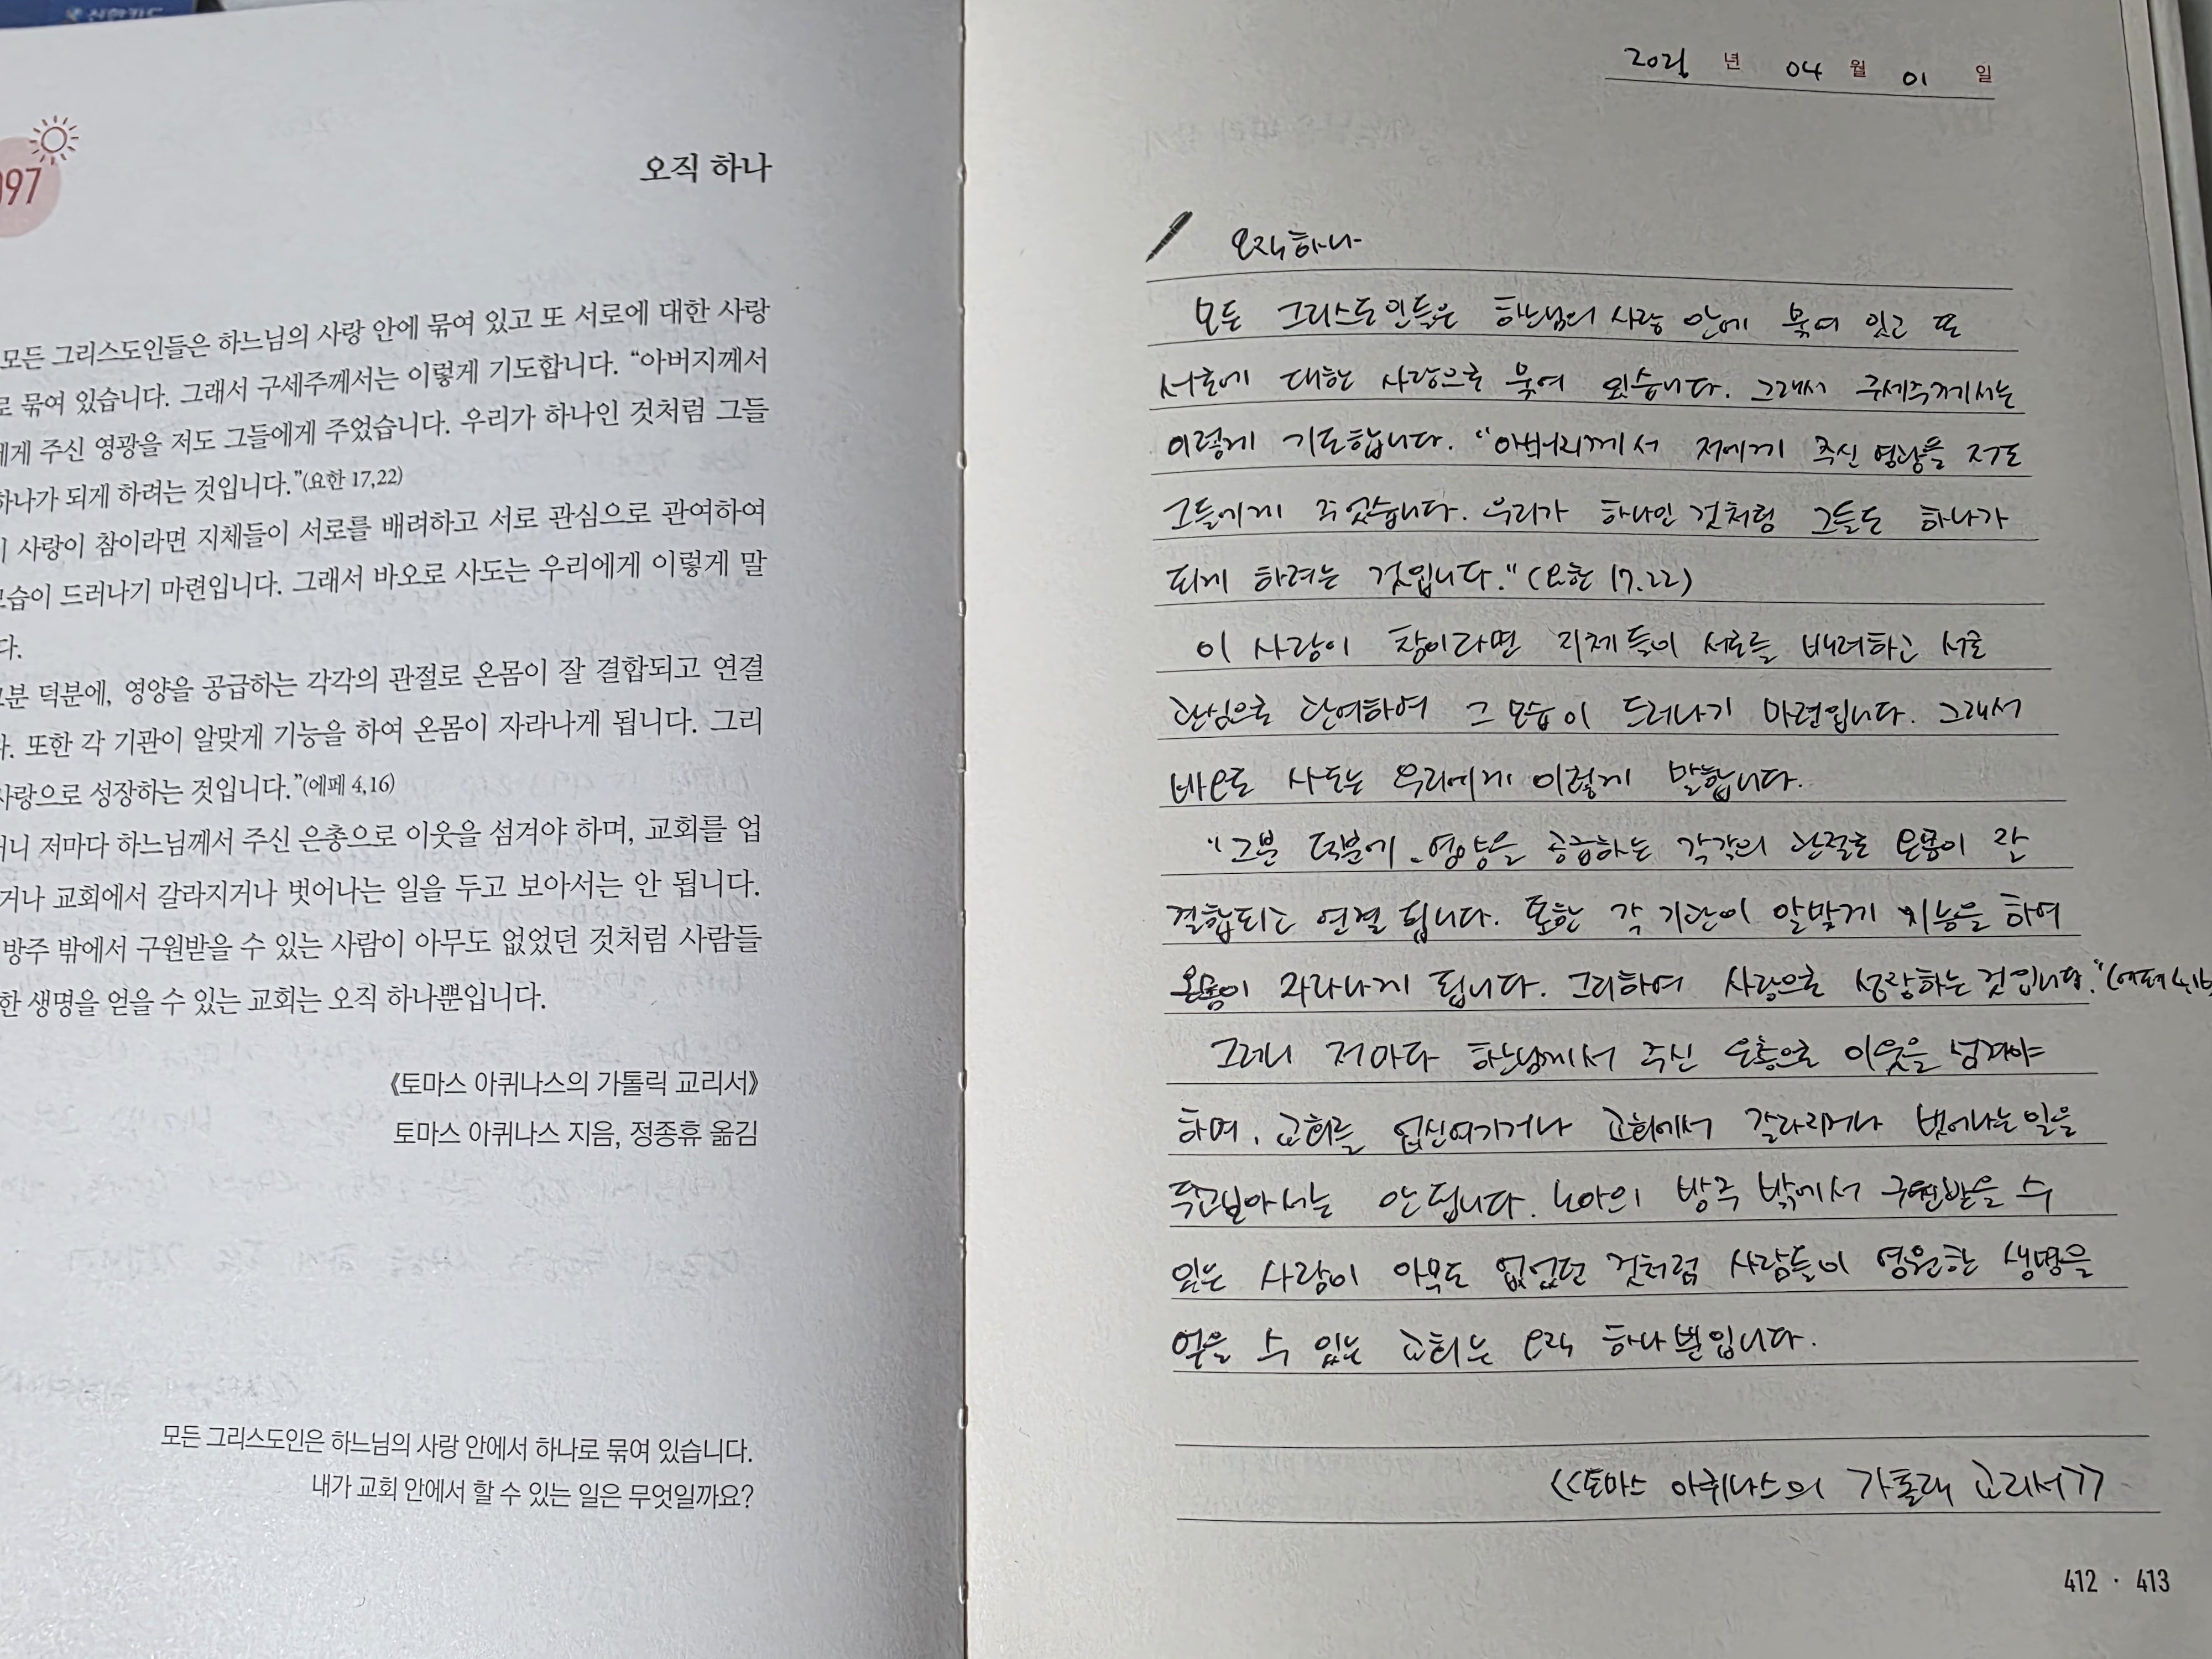 신한카드
097
오직 하나
모든 그리스도인들은 하느님의 사랑 안에 묶여 있고 또 서로에 대한 사랑
로 묶여 있습니다. 그래서 구세주께서는 이렇게 기도합니다. “아버지께서
에게 주신 영광을 저도 그들에게 주었습니다. 우리가 하나인 것처럼 그들
하나가 되게 하려는 것입니다.”(요한 17,22)
이 사랑이 참이라면 지체들이 서로를 배려하고 서로 관심으로 관여하여
모습이 드러나기 마련입니다. 그래서 바오로 사도는 우리에게 이렇게 말
다.
그분 덕분에, 영양을 공급하는 각각의 관절로 온몸이 잘 결합되고 연결
다. 또한 각 기관이 알맞게 기능을 하여 온몸이 자라나게 됩니다. 그리
사랑으로 성장하는 것입니다.”(에페 4,16)
러니 저마다 하느님께서 주신 은총으로 이웃을 섬겨야 하며, 교회를 업
거나 교회에서 갈라지거나 벗어나는 일을 두고 보아서는 안 됩니다.
방주 밖에서 구원받을 수 있는 사람이 아무도 없었던 것처럼 사람들
한 생명을 얻을 수 있는 교회는 오직 하나뿐입니다.
《토마스 아퀴나스의 가톨릭 교리서》
토마스 아퀴나스 지음, 정종휴 옮김
모든 그리스도인은 하느님의 사랑 안에서 하나로 묶여 있습니다.
내가 교회 안에서 할 수 있는 일은 무엇일까요?
년 04 월 01 일
오직 하나
모든 그리스도인들은 하느님의 사랑 안에 묶여 있고 또
서로에 대한 사랑으로 묶여 있습니다. 그래서 구세주께서는
이렇게 기도합니다. “아버지께서 저에게 주신 영광을 저도
그들에게 주었습니다. 우리가 하나인 것처럼 그들도 하나가
되게 하려는 것입니다.” (요한 17.22)
이 사랑이 참이라면 지체들이 서로를 배려하고 서로
관심으로 관여하여 그 모습이 드러나기 마련입니다. 그래서
바오로 사도는 우리에게 이렇게 말합니다.
“그분 덕분에, 영양을 공급하는 각각의 관절로 온몸이 잘
결합되고 연결 됩니다. 또한 각 기관이 알맞게 기능을 하여
온몸이 자라나게 됩니다. 그리하여 사랑으로 성장하는 것입니다.” (에페 4,16
그러니 저마다 하느님께서 주신 은총으로 이웃을 섬겨야
하며, 교회를 업신여기거나 교회에서 갈라지거나 벗어나는 일을
두고보아서는 안 됩니다. 노아의 방주 밖에서 구원받을 수
있는 사람이 아무도 없었던 것처럼 사람들이 영원한 생명을
얻을 수 있는 교회는 오직 하나뿐입니다.
<<토마스 아퀴나스의 가톨릭 교리서>>
412 · 413